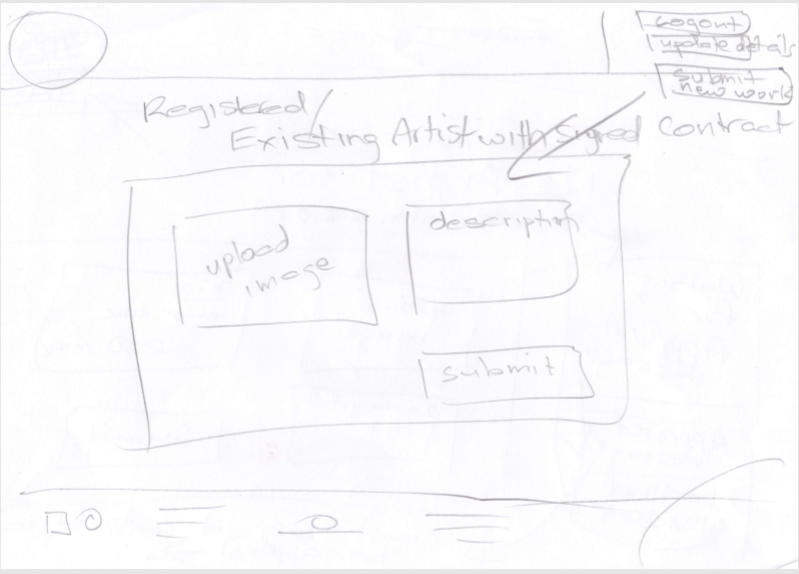 Logout
update details
submit
new work
Registered/
Existing Artist with Signed Contract
upload
image
description
submit